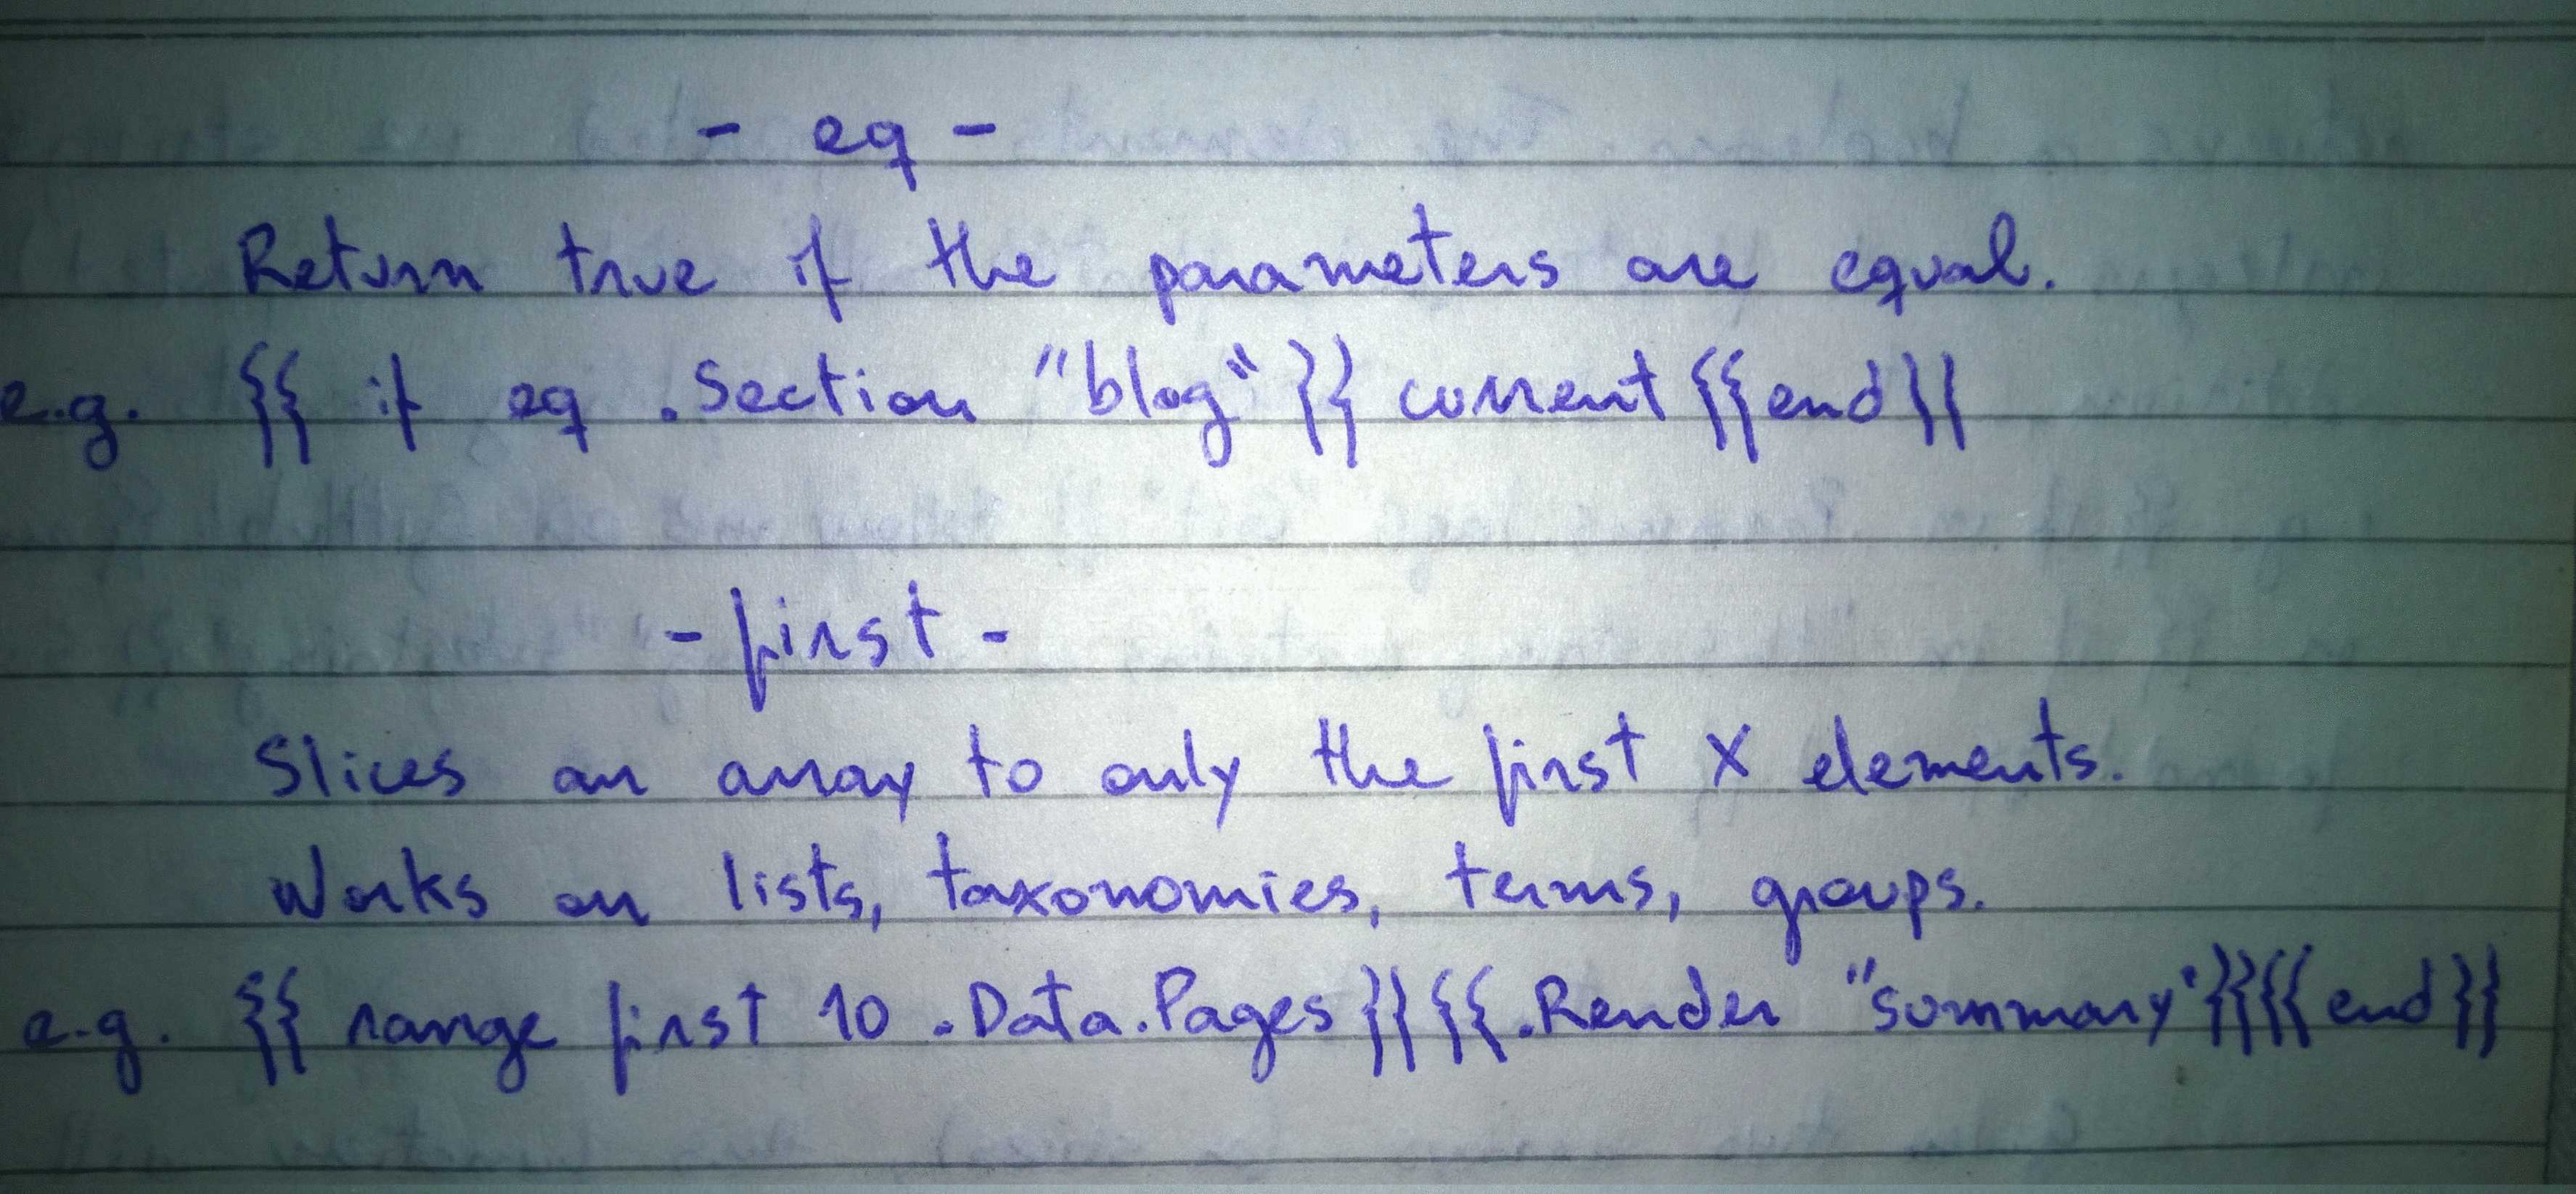 - eq -
Return true if the parameters are equal.
e.g. {{ if eq .Section "blog" }} current {{end}}
- first -
Slices an array to only the first X elements.
Works on lists, taxonomies, terms, groups.
e.g. {{ range first 10 .Data.Pages }} {{.Render "summary"}}{{end}}